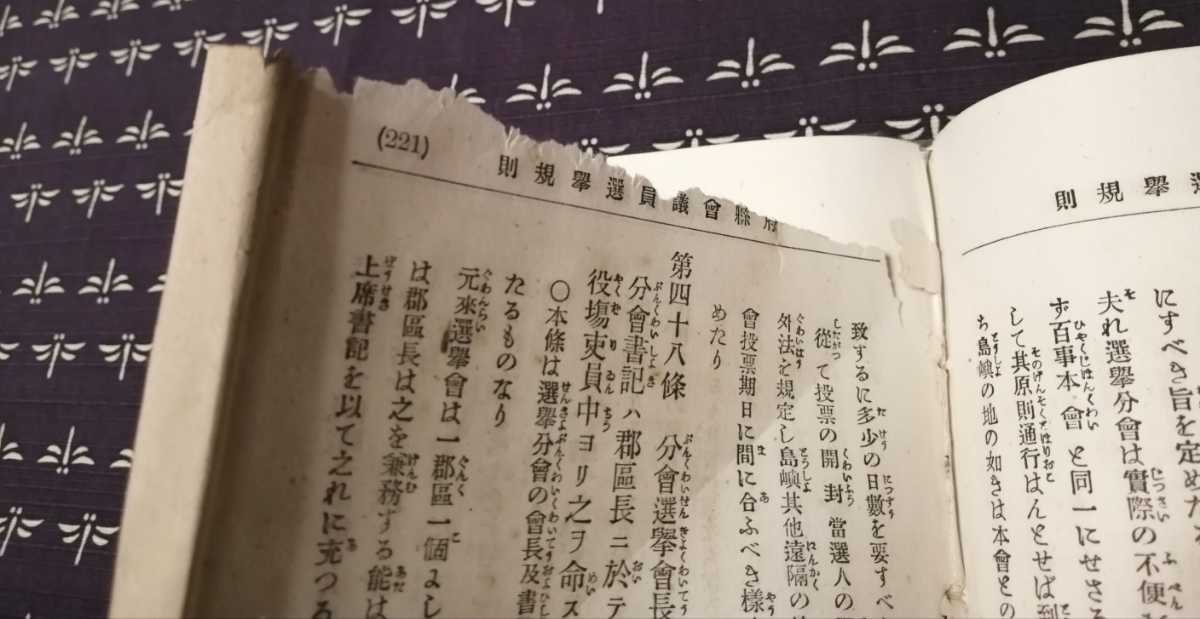 則規擧選
にすべき旨を定めたる
夫れ選擧分會は實際の不便
ず百事本會と同一にせさる
して其原則通行はんとせば到
ち島嶼の地の如きは本會との
(221)
則規擧選員議會縣府
致するに多少の日數を要すべ
從て投票の開封當選人の
外法を規定し島嶼其他遠隔の
會投票期日に間に合ふべき樣
めたり
第四十八條 分會選擧會長
分會書記ハ郡區長ニ於テ
役塲吏員中ヨリ之ヲ命ス
〇本條は選擧分會の會長及書
たるものなり
元來選擧會は一郡區一個よし
は郡區長は之を兼務する能は
上席書記を以て之れに充つる